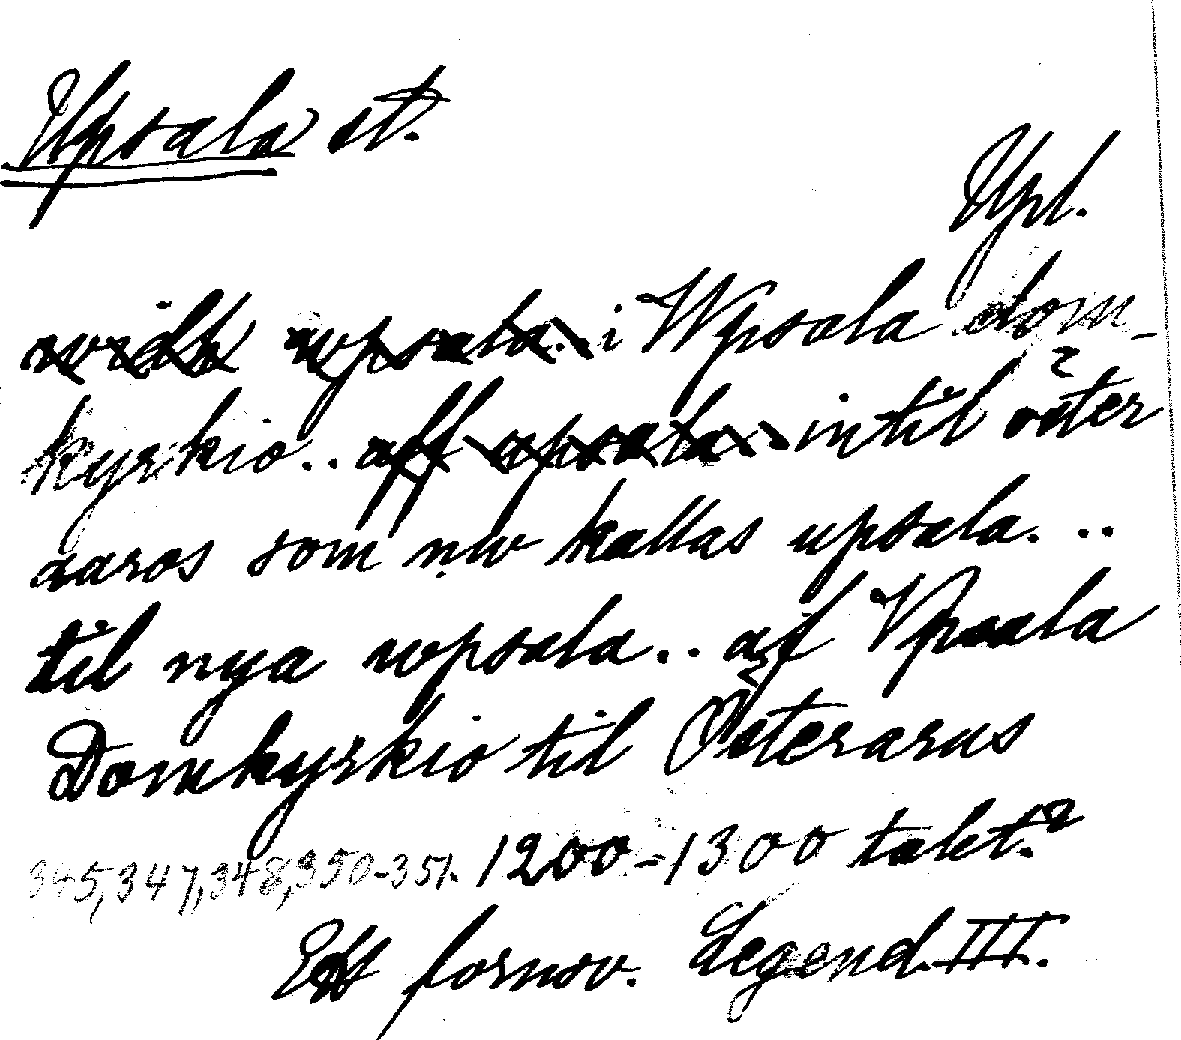 Upsala st.
Upl.
widh wpsala.. i Wpsala dom-
kyrkio.. aff upsala.. intil öster
aaros som nw kallas upsala. ..
til nya wpsala.. af Vpsala
Domkyrkio til Österarus
345, 347, 348, 350-351. 1200-1300 talet?
Ett fornsv. Legend. III.